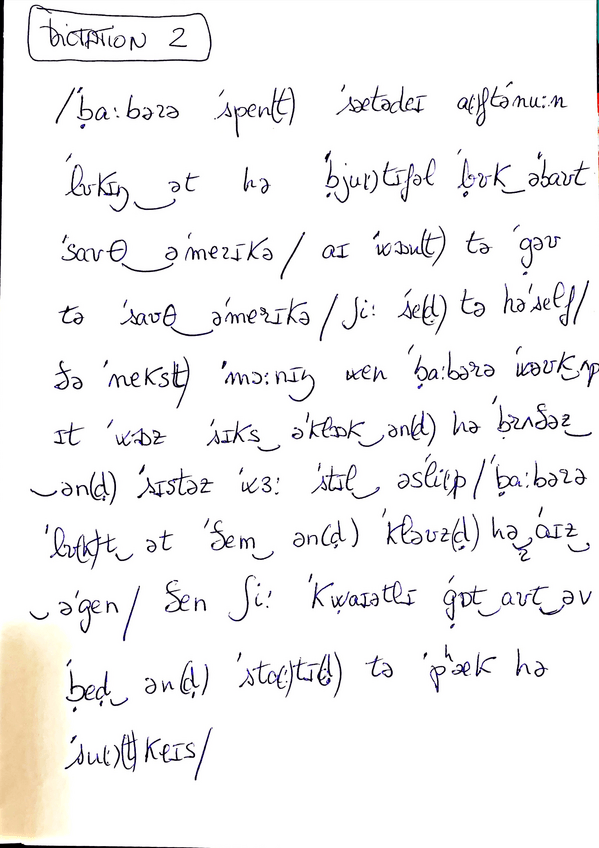 DICTATION 2
/ˈb̥ɑːbəɹə ˈspen(t) ˈsætədeɪ ɑ(ː)ftəˈnuːn
ˈlʊkɪŋ‿ət hə ˈb̥ju(ː)tɪfəl ˈb̥ʊk‿əbaʊt
ˈsaʊθ‿əˈmeɹɪkə / aɪ ˈwɒn(t) tə ˈɡ̥əʊ
tə ˈsaʊθ‿əˈmeɹɪkə / ʃiː ˈse(d̥) tə həˈself/
ðə ˈneks(t) ˈmɔːnɪŋ wen ˈb̥ɑːbəɹə ˈwəʊk‿ʌp
ɪt ˈwɒz ˈsɪks‿əˈklɒk‿ən(d̥) hə ˈbɹʌðəz‿
‿ən(d̥) ˈsɪstəz ˈwɜː ˈstɪl‿əsli(ː)p / ˈb̥ɑːbəɹə
ˈlʊ(k)t‿ət ˈðem‿ən(d̥) ˈkləʊz(d̥) hə‿ˈaɪz‿
‿əˈɡen / ðen ʃiː ˈkwaɪətlɪ ˈɡ̥ɒt‿aʊt‿əv
ˈb̥ed̥‿ən(d̥) ˈstɑ(ː)tɪ(d̥) tə ˈpʰæk hə
ˈsu(ː)(t)keɪs/